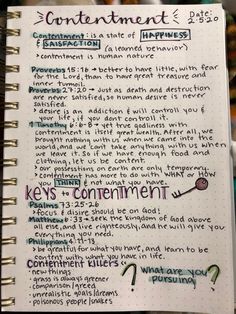 Contentment
Date:
2·5·20
Contentment: is a state of HAPPINESS
& SAISFACTION (a learned behavior)
•contentment is human nature
Proverbs 15:16 → better to have little, with fear
for the Lord, than to have great treasure and
inner turmoil.
Proverbs 27:20 → Just as death and destruction
are never satisfied, so human desire is never
satisfied.
•desire is an addiction & will controll you &
your life, if you don't control it.
1 Timothy 6:6-8 → yet true godliness with
contentment is itself great wealth. After all, we
brought nothing with us when we came into the
world, and we can't take anything with us when
we leave it. So if we have enough food and
clothing, let us be content.
•our possessions on earth are only temporary.
•contentment has more to do with WHAT or HOW
you THINK & not what you have.
KEYS to CONTENTMENT
Psalms 73:25-26
•focus & disire should be on God!
Matthew 6:33 → seek the Kingdom of God above
all else, and live righteously, and he will give you
everything you need.
Philippians 4:11-13
•be greatful for what you have, and learn to be
content with what you have in life.
Contentment Killers
•new things
•grass is always greener
•comparison/greed
•unrealistic goals/dreams
•poisonous people/snakes
? What are you ?
pursuing